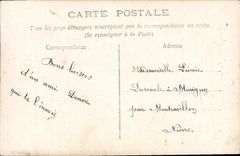 CARTE POSTALE
Tous les pays étrangers n'acceptent pas la correspondance au recto
(Se renseigner à la Poste)
Correspondance
Bons baisers
d'un ami
qui te l'envoie
Mademoiselle Léonie
à
par Montsauche
Nièvre